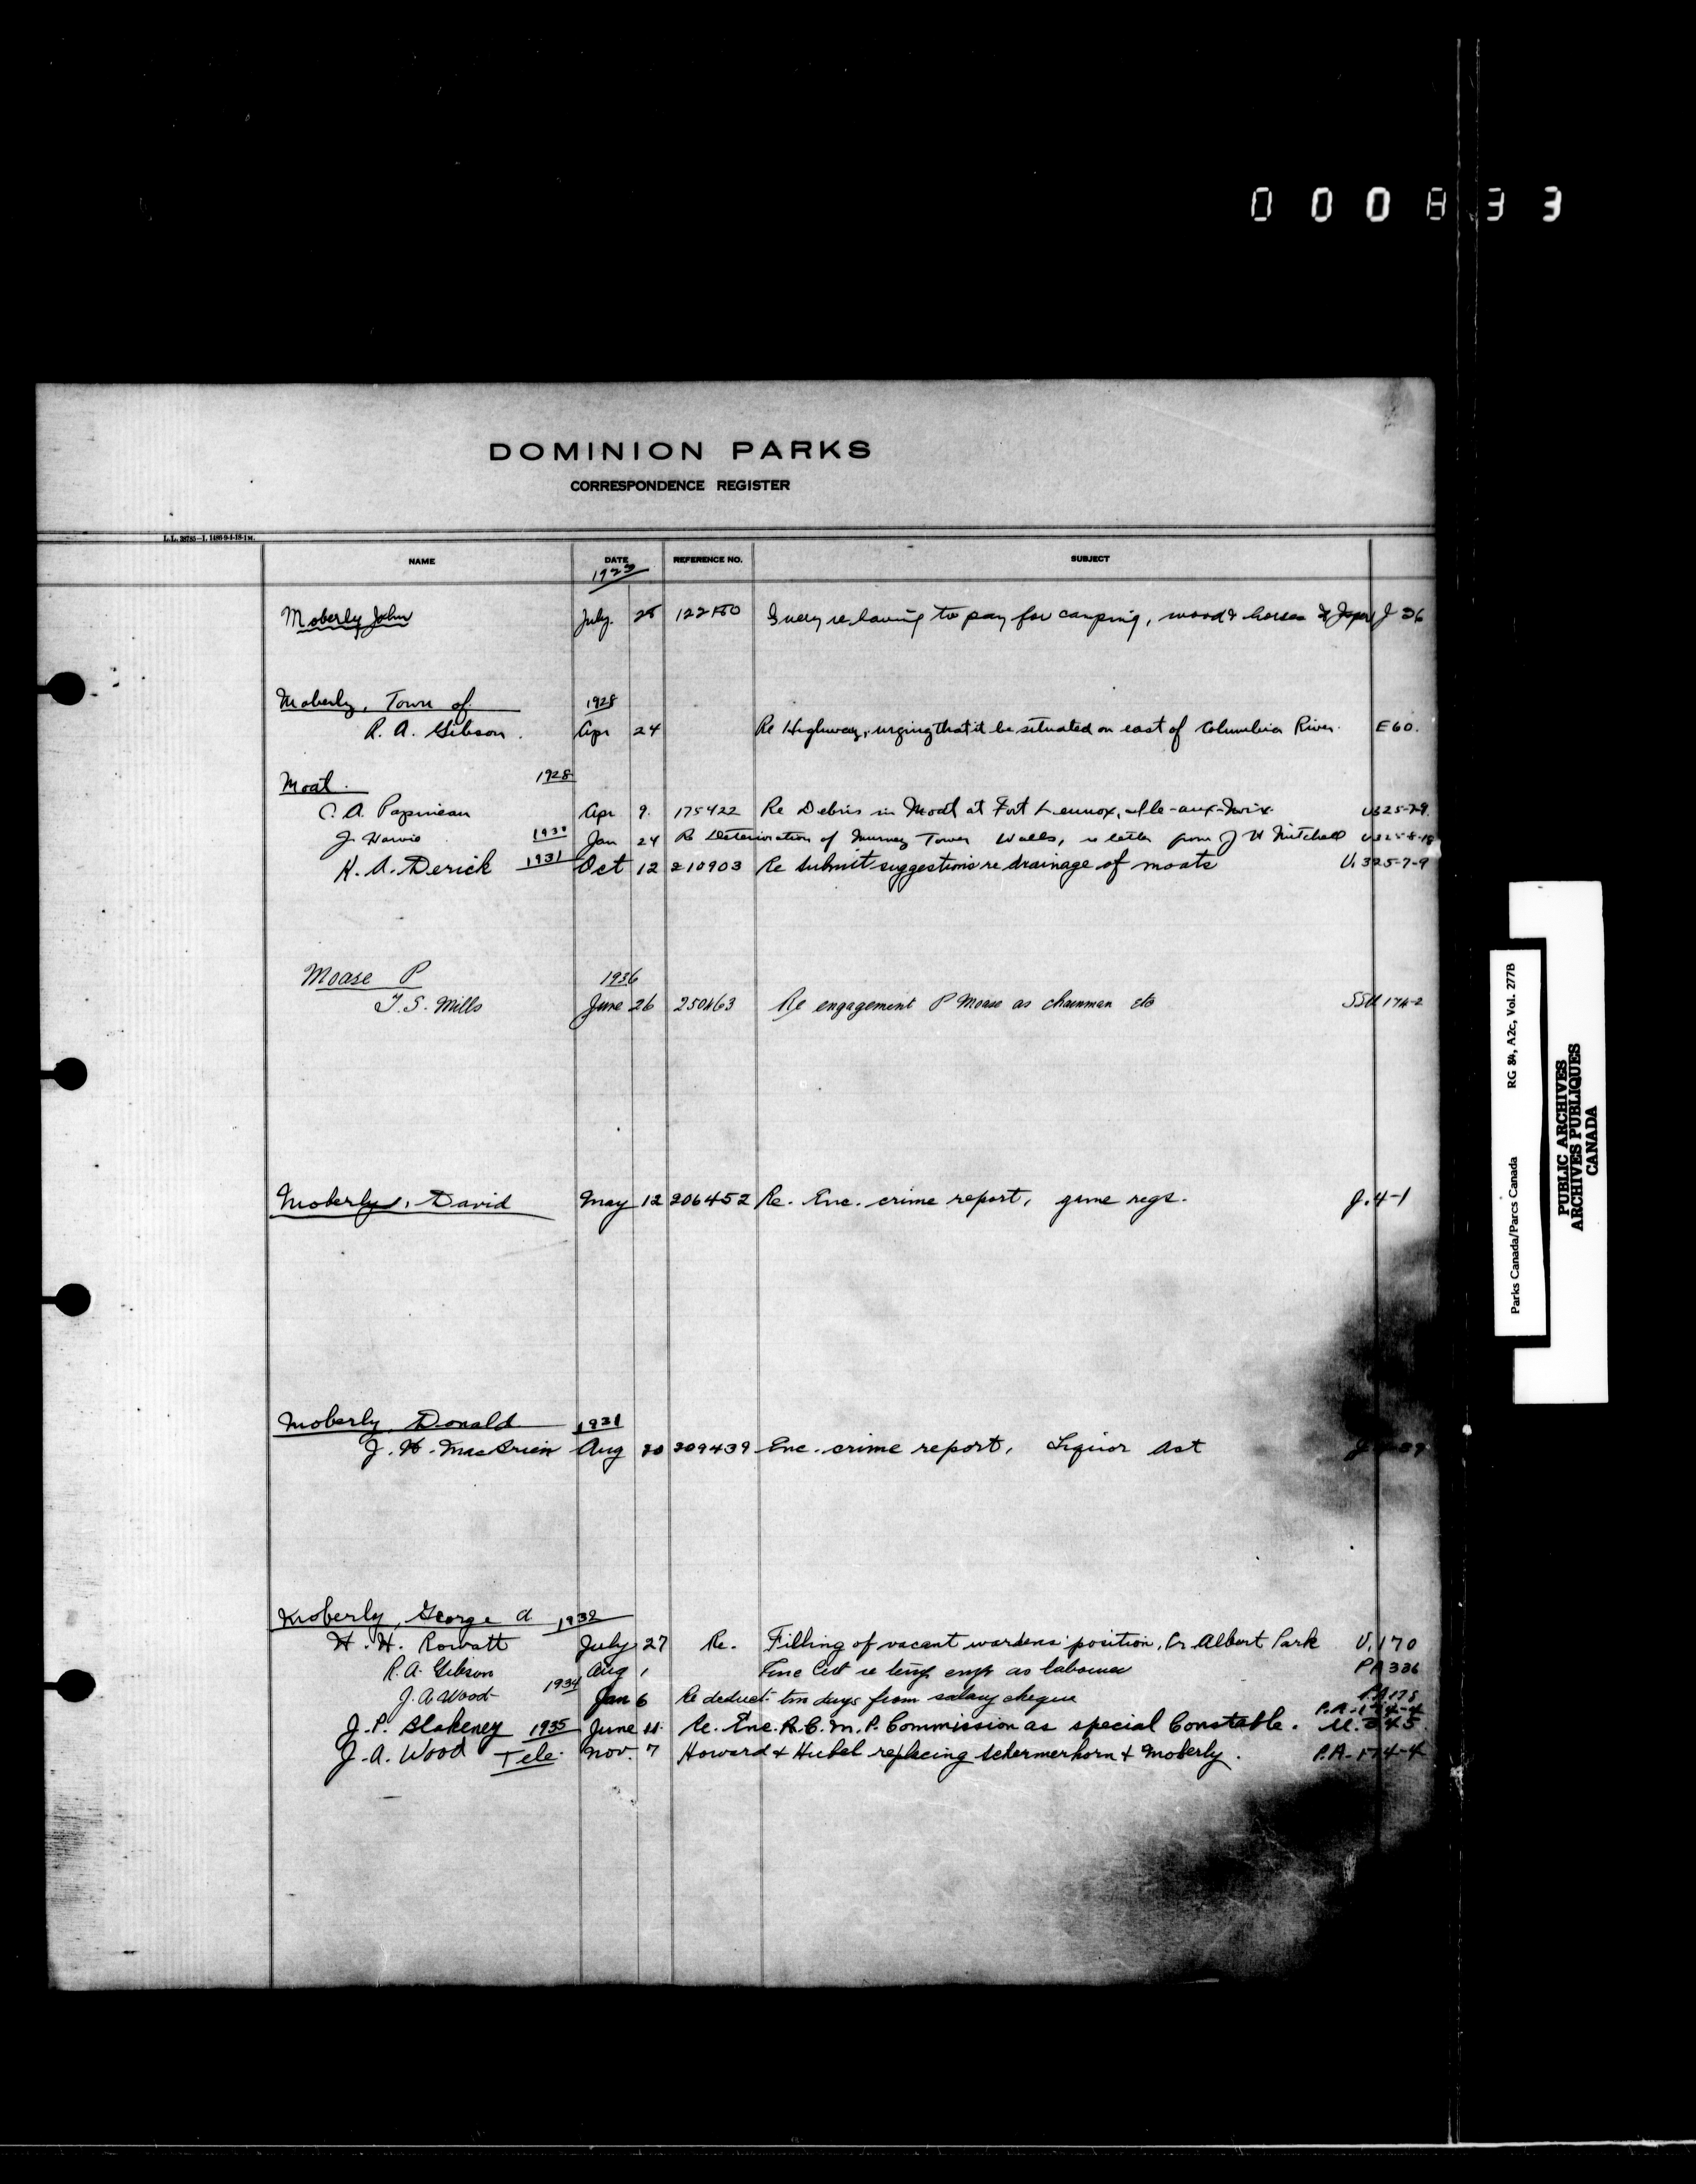 000833
DOMINION PARKS
CORRESPONDENCE REGISTER
NAME DATE REFERENCE NO. SUBJECT
1923
Moberly John July. 28 122180 Query re having to pay for camping, wood & horses J 36
Moberly, Town of 1928
R. A. Gibson. Apr 24 Re Highway, urging that it be situated on east of Columbia River. E60.
Moat. 1928
C. A. Papineau Apr 9. 175422 Re Debris in Moat at Fort Lennox, Ile-aux-Noix U325-7-9.
J. Harvie Jan 24 Re Deterioration of Murney Tower Walls, letter from J H Mitchell
K. A. Derick 1931 Oct 12 210903 Re Submit suggestions re drainage of moats U.325-7-9
Moase P 1936
T.S. Mills June 26 250463 Re engagement P Moase as chainman etc 174-2
Moberly, David May 12 206452 Re. Enc. crime report, game regs. J.4-1
Moberly, Donald 1931
J. H. MacBrien Aug 20 209439 Enc. crime report, Liquor Act
Moberly, George A 1932
H. H. Rowatt July 27 Re. Filling of vacant wardens position, Pr Albert Park U.170
R.A. Gibson Aug 1 re temp emp as labourer PA 336
J. A. Wood 1934 Jan 6 Re deduct. days from salary cheque PA178
P.A.-174-4
J. P. Blakeney 1935 June 11. Re. Enc. R.C.M.P. Commission as special Constable. U.345.
J. A. Wood Tele. Nov. 7 Howard & Hubel replacing Schermerhorn & Moberly. P.A-174-4
Parks Canada/Parcs Canada RG 84, A2c, Vol. 277B
PUBLIC ARCHIVES
ARCHIVES PUBLIQUES
CANADA